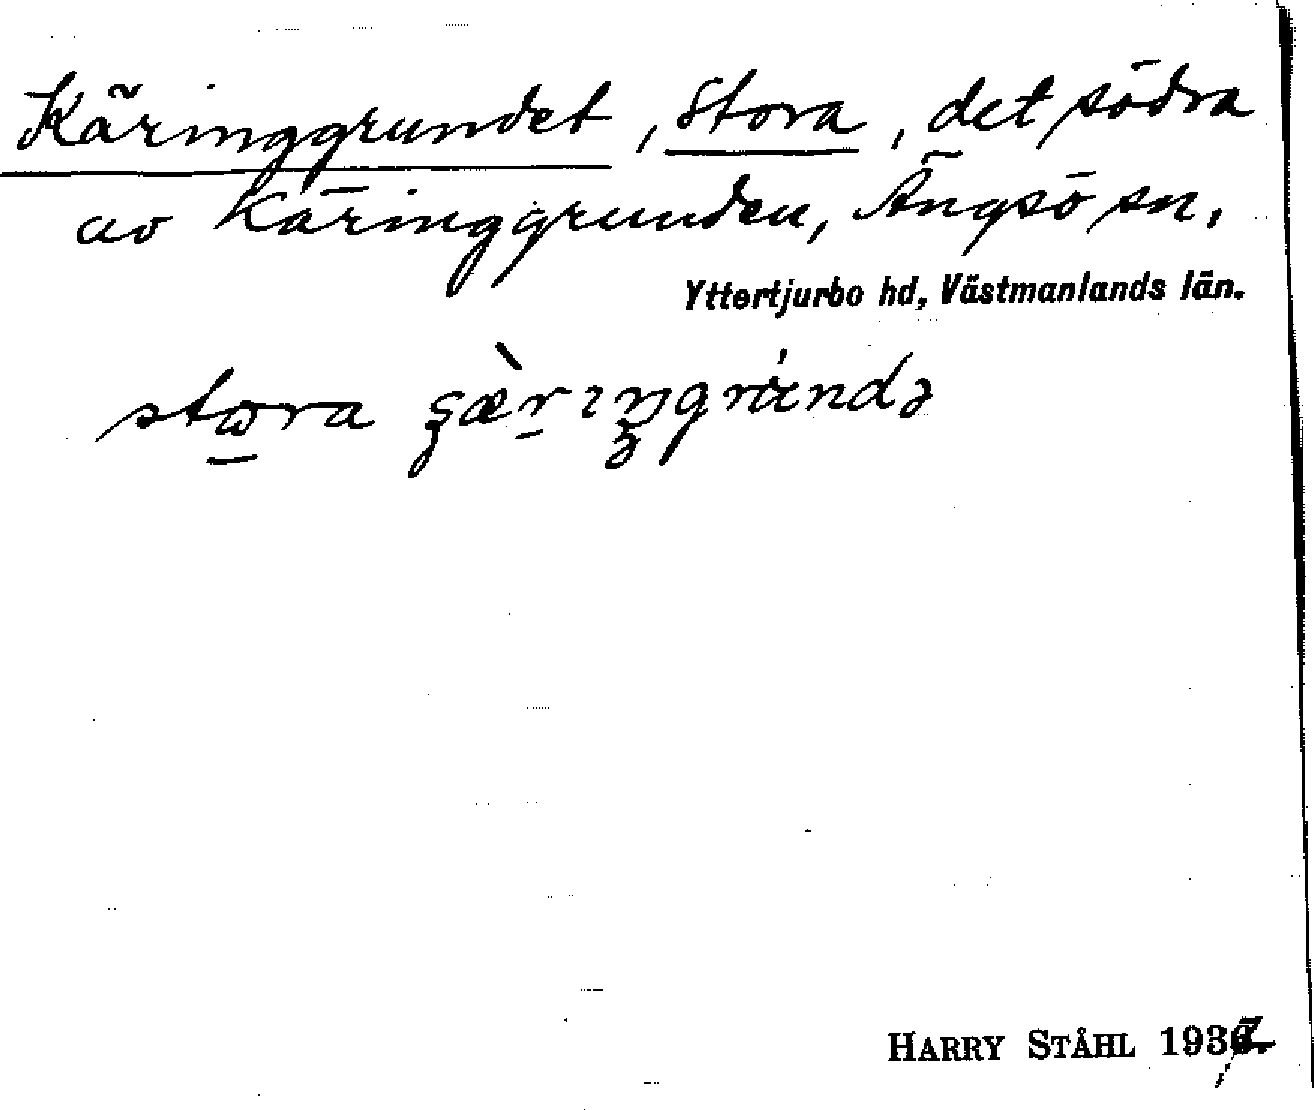 Käringgrundet, Stora, det södra
av Käringgrunden, Ängsö sn,
Yttertjurbo hd, Västmanlands län.
stora
HARRY STÅHL 1937.